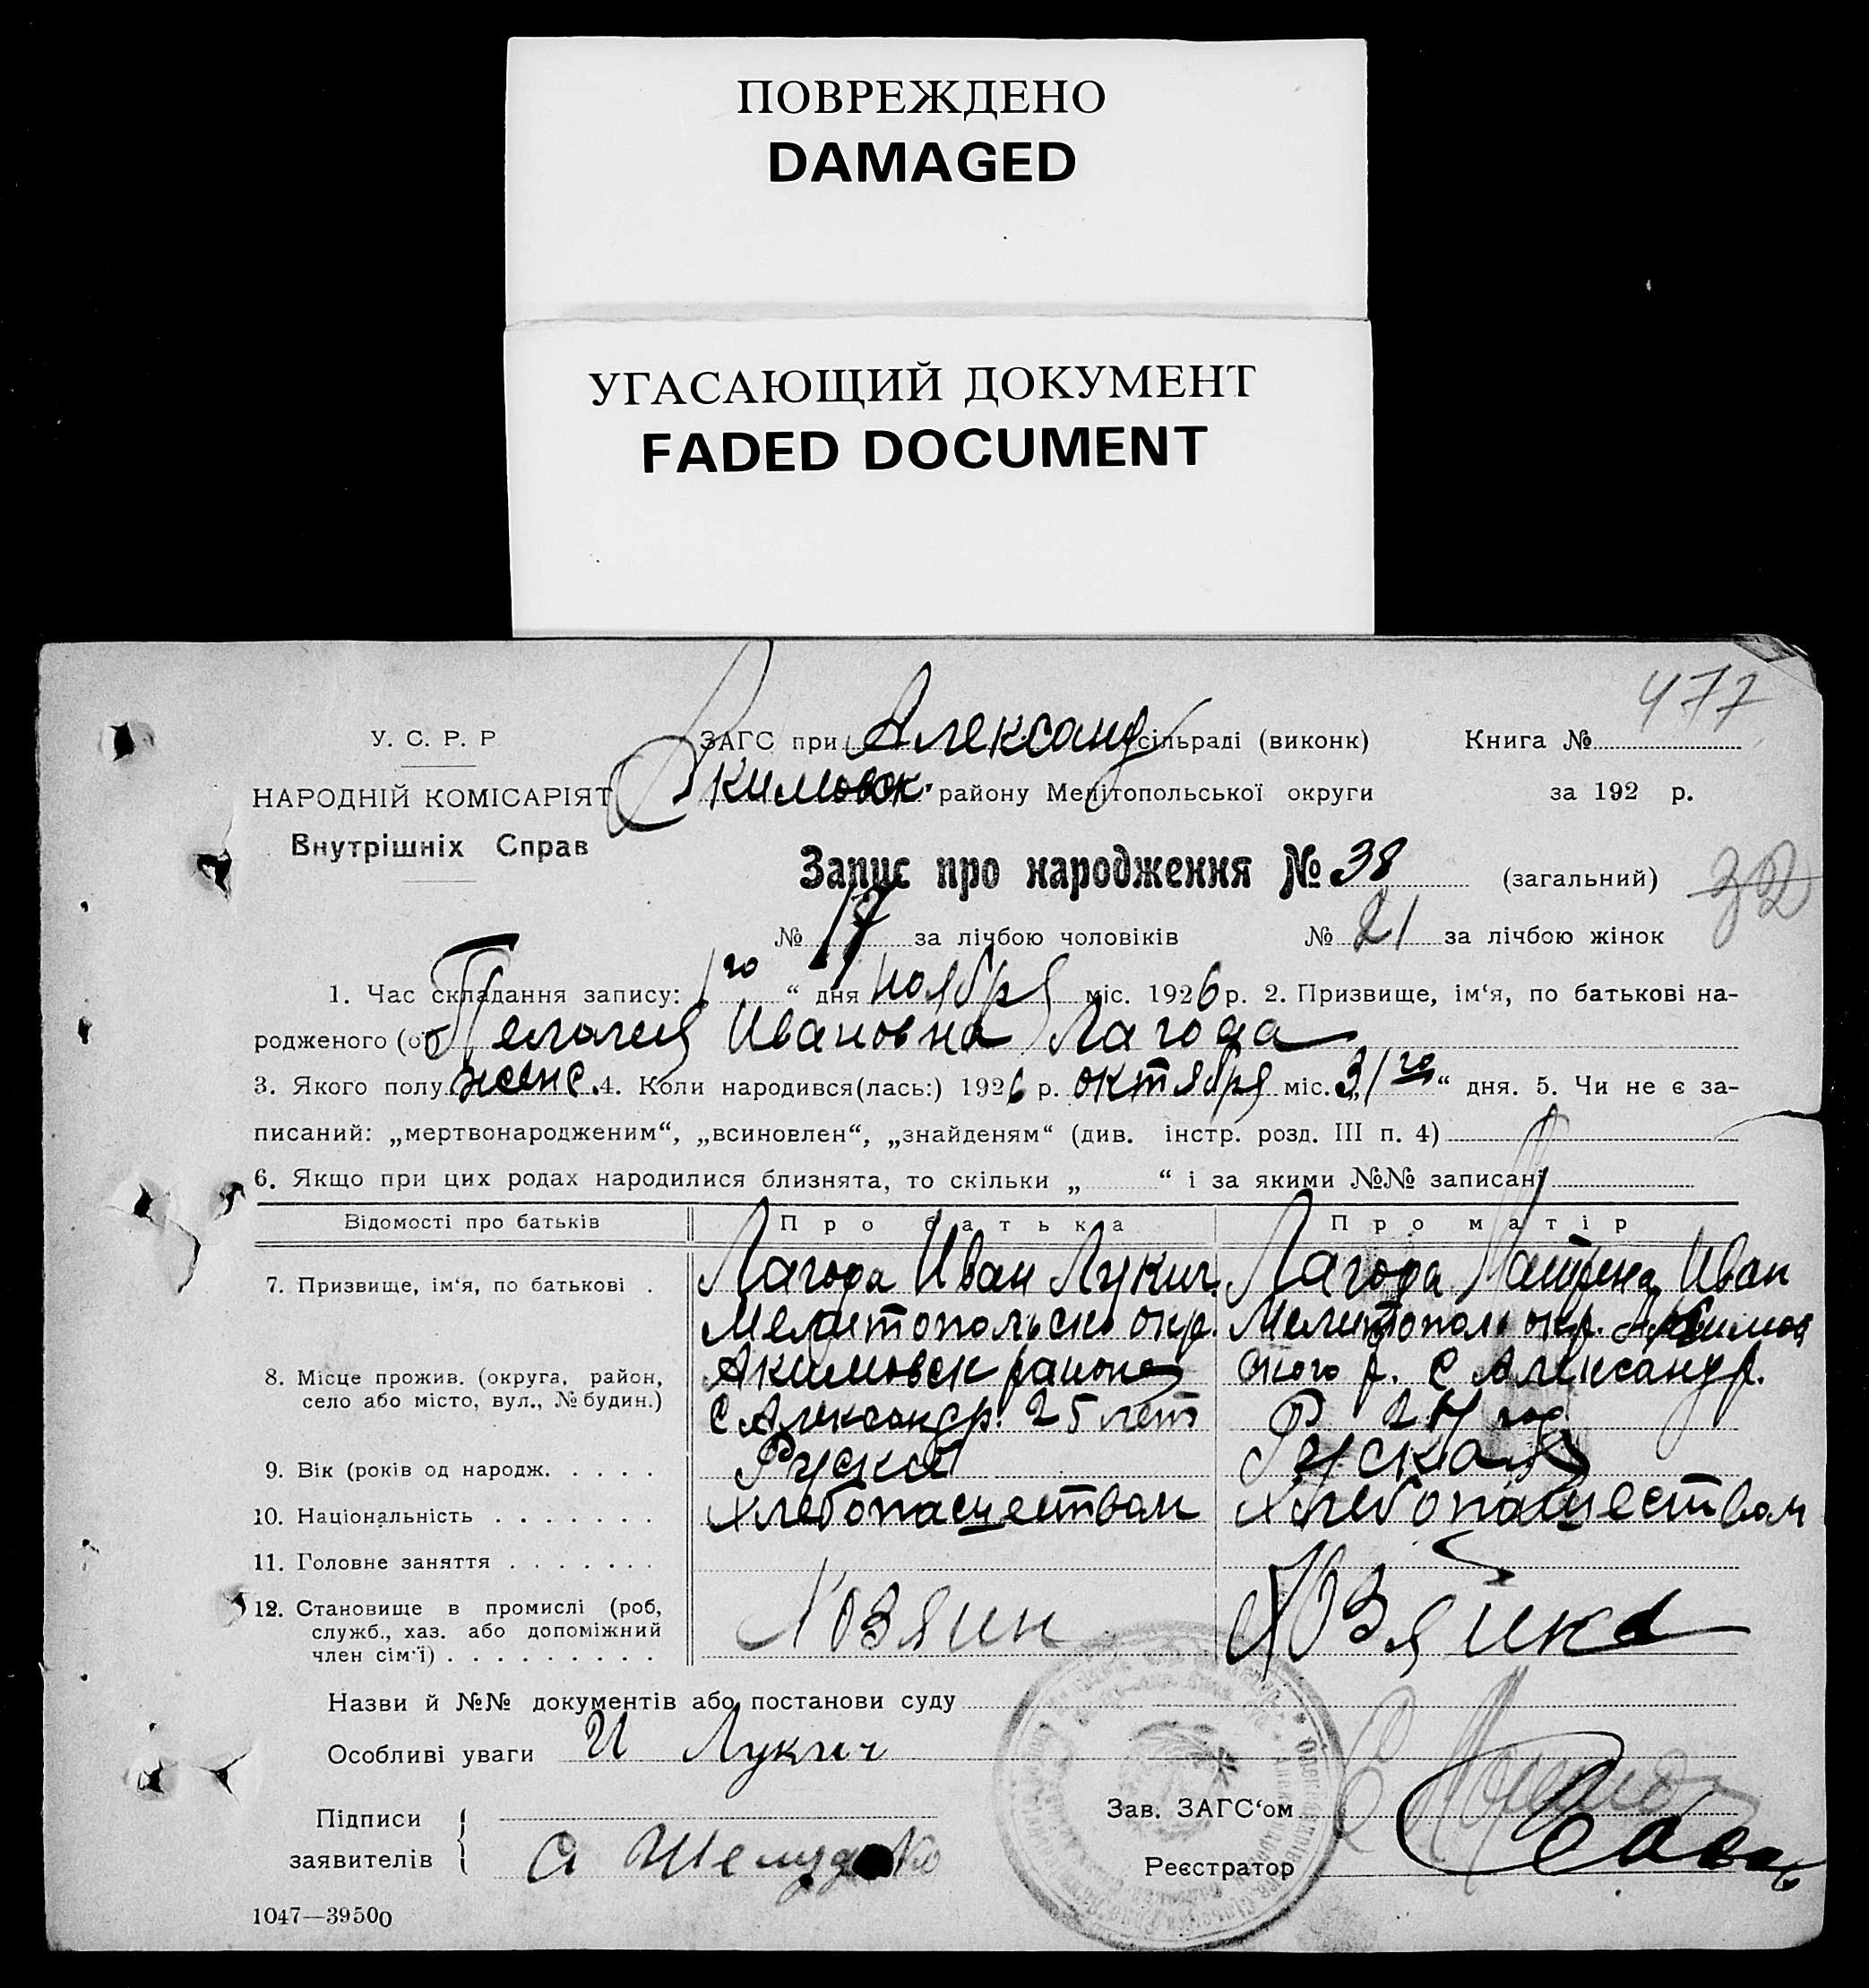 ПОВРЕЖДЕНО
DAMAGED
УГАСАЮЩИЙ ДОКУМЕНТ
FADED DOCUMENT
477
У. С. Р. Р
ЗАГС при Александ сільраді (виконк) Книга №
НАРОДНІЙ КОМІСАРІЯТ
Акимовск. району Мелітопольської округи за 192 р.
Внутрішніх Справ
Запис про народження № 38 (загальний) 32
№ 17 за лічбою чоловіків № 21 за лічбою жінок
1. Час складання запису: 1го “ дня ноября міс. 1926 р. 2. Призвище, ім‘я, по батькові на-
родженого (ої) Пелагея Ивановна Лагода
3. Якого полу женс. 4. Коли народився(лась:) 1926 р. октября міс. „31го“ дня. 5. Чи не є за-
писаний: „мертвонародженим“, „всиновлен“, „знайденям“ (див. інстр. розд. III п. 4)
6. Якщо при цих родах народилися близнята, то скільки „ “ і за якими №№ записані
Відомості про батьків Про батька Про матір
7. Призвище, ім‘я, по батькові . Лагода Иван Лукич. Лагода Иван
Мелитопольско окр. Мелитополь окр. Акимов
8. Місце прожив. (округа, район, Акимовск района ского р. с Александр.
село або місто, вул., № будин.) с Александр. 25 лет Р 24 год
9. Вік (років од народж. . . . . Руской Руская
10. Національність . . . . . . . Хлебопашеством Хлебопашеством
11. Головне заняття . . . . . . .
12. Становище в промислі (роб, Хозяин Хозяйка
служб., хаз. або допоміжний
член сім‘ї) . . . . . . . . .
Назви й №№ документів або постанови суду
Особливі уваги И Лукич
Підписи
Зав. ЗАГС‘ом
заявителів
Реєстратор
1047—39500